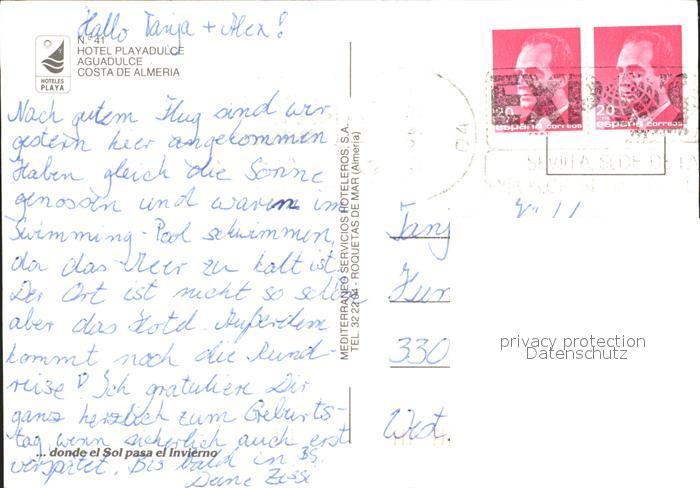 Hallo Tanja + Alex!
N. 41
HOTEL PLAYADULCE
AGUADULCE
COSTA DE ALMERIA
HOTELES
PLAYA
Nach gutem Flug sind wir
gestern hier angekommen
Haben gleich die Sonne
genossen und waren im
Swimming-Pool schwimmen,
da das Meer zu kalt ist.
Der Ort ist nicht so schön
aber das Hotel. Außerdem
kommt noch die Rund-
reise! Ich gratuliere Dir
ganz herzlich zum Geburts-
tag wenn sicherlich auch erst
... donde el Sol pasa el Invierno
verspätet. Bis bald in BS.
Deine Zissi
MEDITERRANEO SERVICIOS HOTELEROS, S.A.
TEL. 32 22 04 - ROQUETAS DE MAR (Almería)
20
españa correos
20
españa correos
EXPO
SEVILLA SEDE DE LA
04
Tanj
Kur
330
West.
privacy protection
Datenschutz